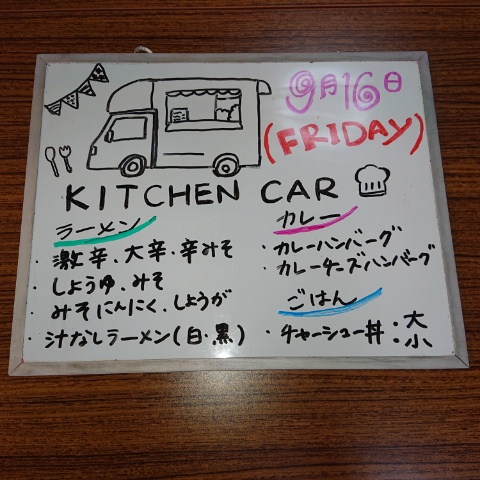 9月16日
(FRIDAY)
KITCHEN CAR
ラーメン
・激辛、大辛・辛みそ
・しょうゆ、みそ
・みそにんにく、しょうが
・汁なしラーメン(白・黒)
カレー
・カレーハンバーグ
・カレーチーズハンバーグ
ごはん
・チャーシュー丼:大
小